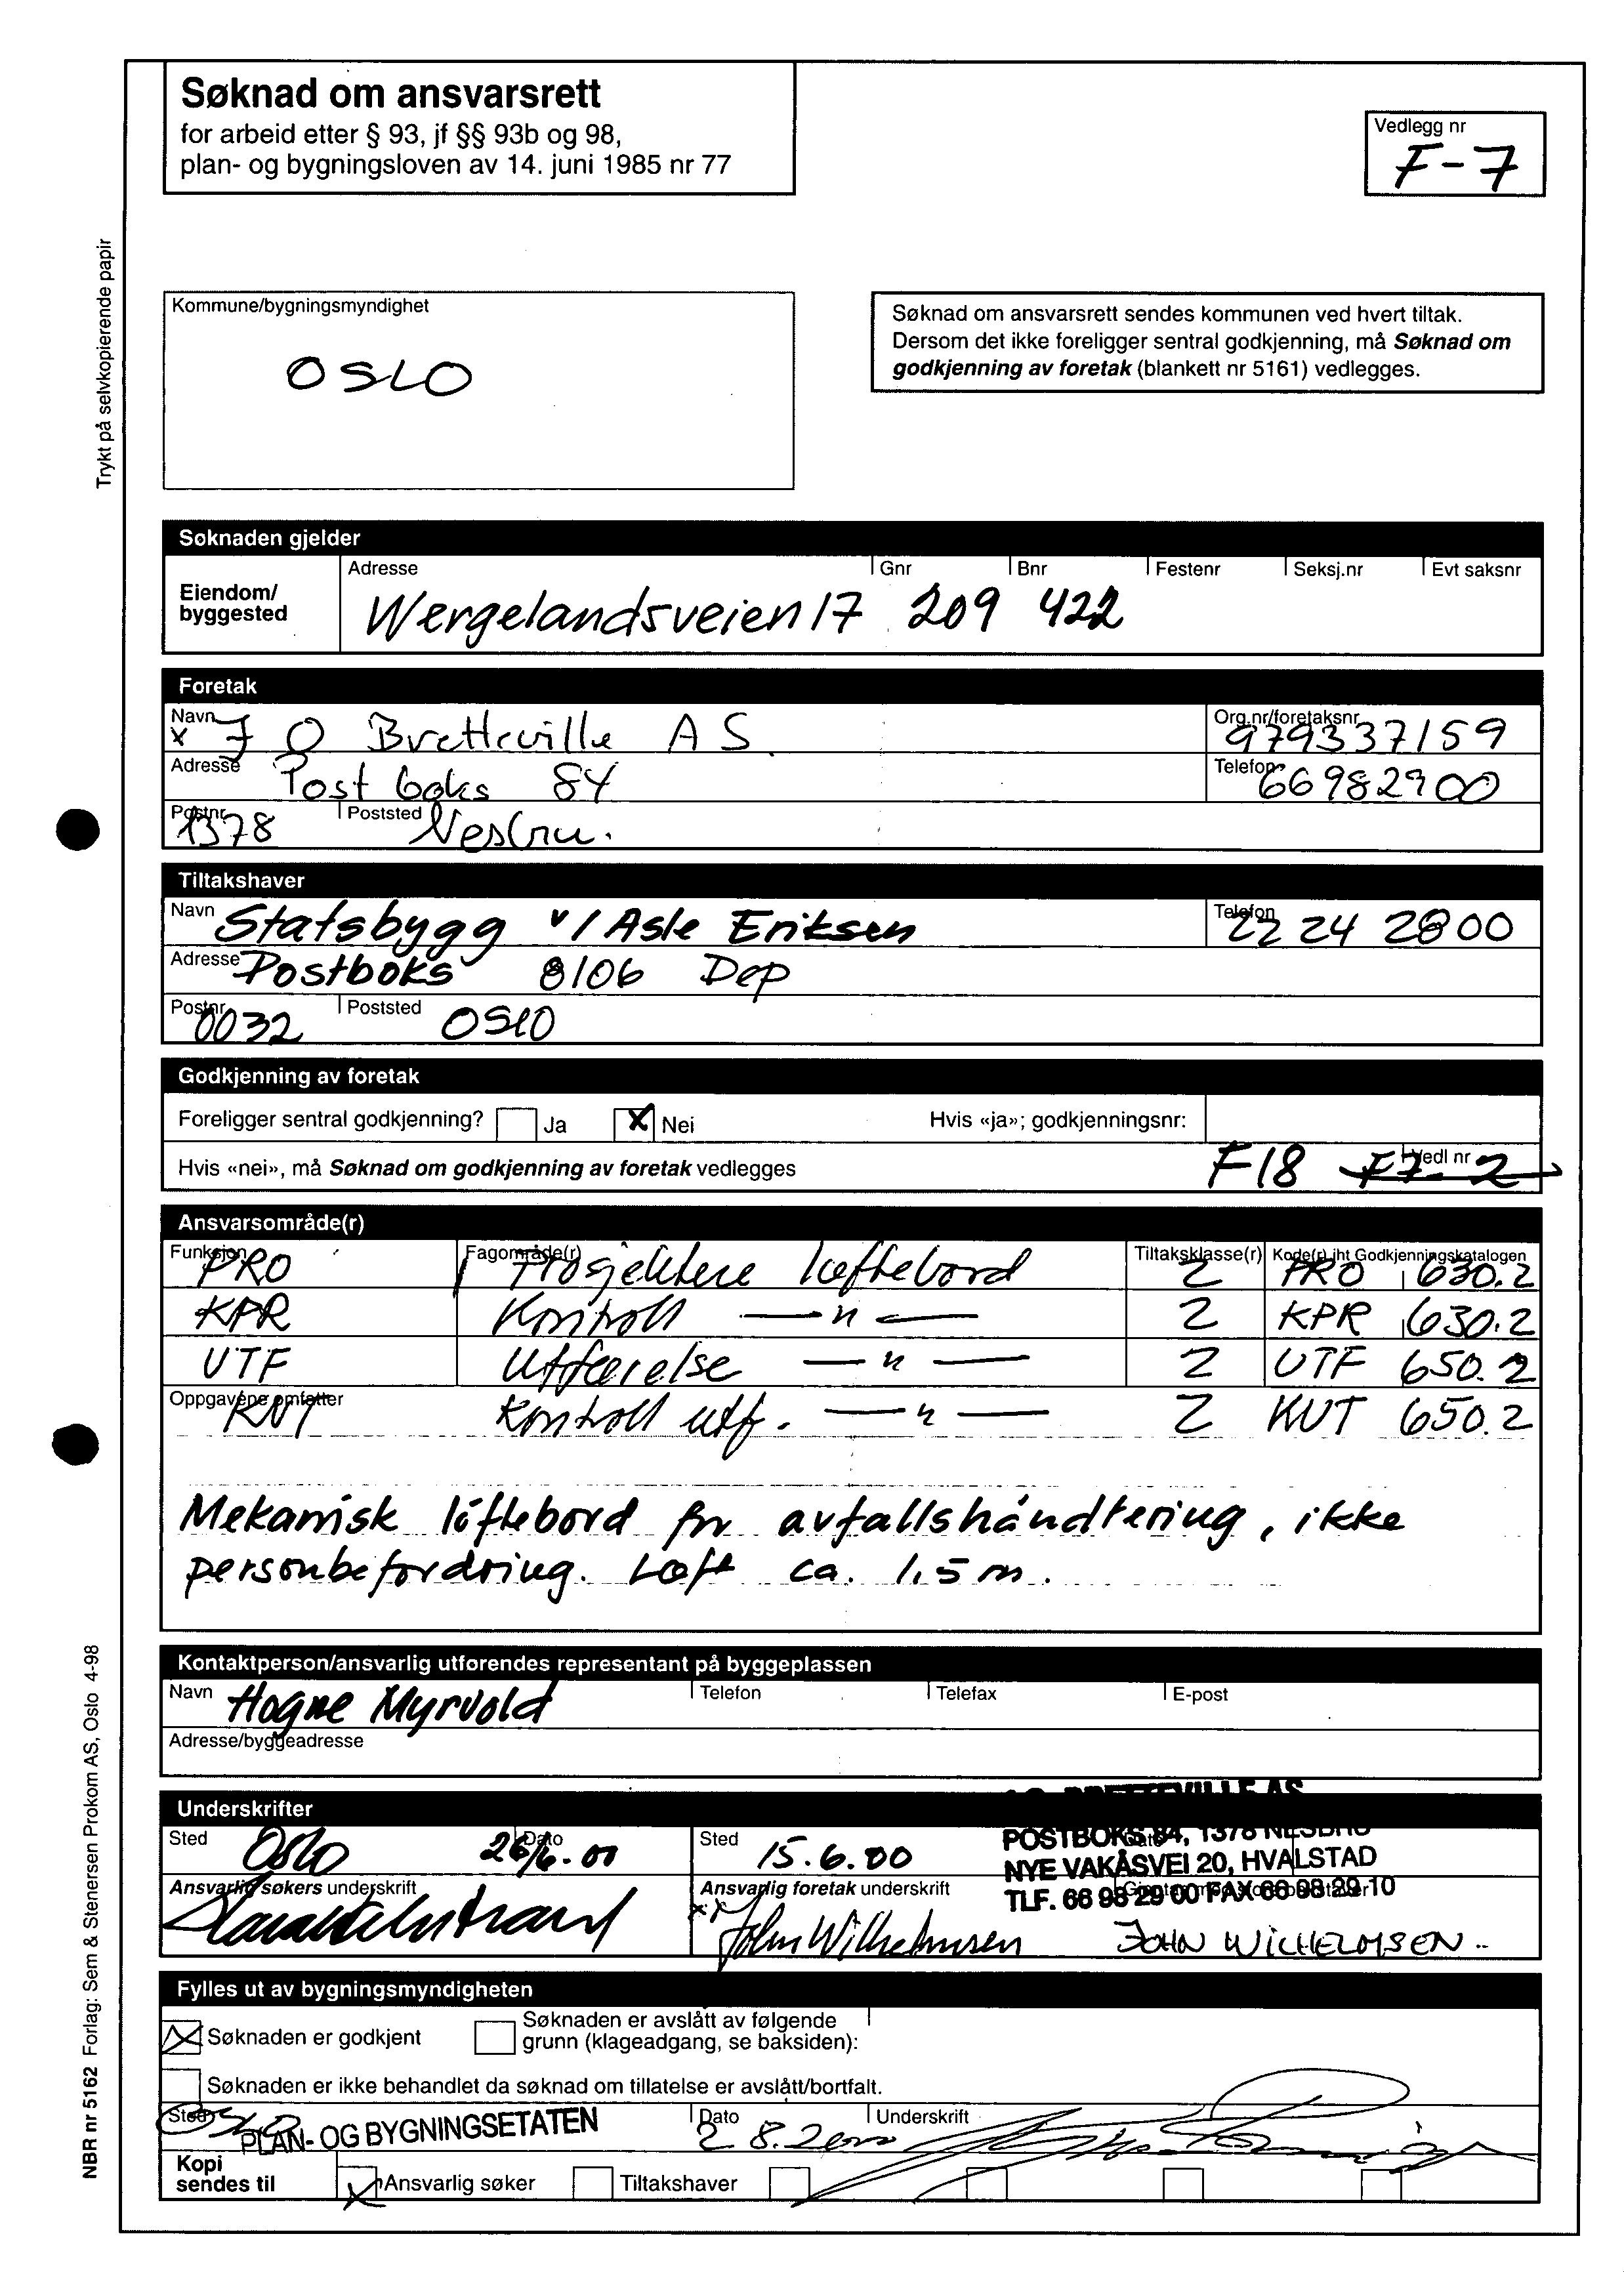 Søknad om ansvarsrett
for arbeid etter § 93, jf §§ 93b og 98,
plan- og bygningsloven av 14. juni 1985 nr 77
Vedlegg nr
F-7
Trykt på selvkopierende papir
Kommune/bygningsmyndighet
OSLO
Søknad om ansvarsrett sendes kommunen ved hvert tiltak.
Dersom det ikke foreligger sentral godkjenning, må Søknad om
godkjenning av foretak (blankett nr 5161) vedlegges.
Søknaden gjelder
Eiendom/
byggested
Adresse Gnr Bnr Festenr Seksj.nr Evt saksnr
Wergelandsveien 17 209 422
Foretak
Navn Org.nr/foretaksnr
x J O Bretteville AS 979337159
Adresse Telefon
Postboks 84 66982900
Postnr Poststed
1378 Nesbru.
Tiltakshaver
Navn Telefon
Statsbygg v/ Asle Eriksen 22 24 28 00
Adresse
Postboks 8106 Dep
Postnr Poststed
0032 OSLO
Godkjenning av foretak
Foreligger sentral godkjenning? Ja x Nei Hvis «ja»; godkjenningsnr:
Hvis «nei», må Søknad om godkjenning av foretak vedlegges F18 F7-2 Vedl nr
Ansvarsområde(r)
Funksjon Fagområde(r) Tiltaksklasse(r) Kode(r) iht Godkjenningskatalogen
PRO Prosjektere løftebord 2 PRO 630.2
KPR Kontroll — " — 2 KPR 630.2
UTF Utførelse — " — 2 UTF 650.2
Oppgavene omfatter
KUT Kontroll utf. — " — 2 KUT 650.2
Mekanisk löftebord for avfallshåndtering, ikke
personbefordring. Løft ca. 1,5 m.
Kontaktperson/ansvarlig utførendes representant på byggeplassen
Navn Telefon Telefax E-post
Hogne Myrvold
Adresse/byggeadresse
Underskrifter
BRETTEVILLE AS
POSTBOKS 84, 1378 NESBRU
NYE VAKÅSVEI 20, HVALSTAD
TLF. 66 98 29 00 FAX 66 98 29 10
Sted Dato Sted
Oslo 26/6-00 15.6.00
Ansvarlig søkers underskrift Ansvarlig foretak underskrift
xx John Wilhelmsen JOHN WILHELMSEN
Fylles ut av bygningsmyndigheten
x Søknaden er godkjent
Søknaden er avslått av følgende
grunn (klageadgang, se baksiden):
Søknaden er ikke behandlet da søknad om tillatelse er avslått/bortfalt.
Sted Dato Underskrift
Oslo PLAN- OG BYGNINGSETATEN 2 8.2000
Kopi
sendes til
x Ansvarlig søker Tiltakshaver
NBR nr 5162 Forlag: Sem & Stenersen Prokom AS, Oslo 4-98